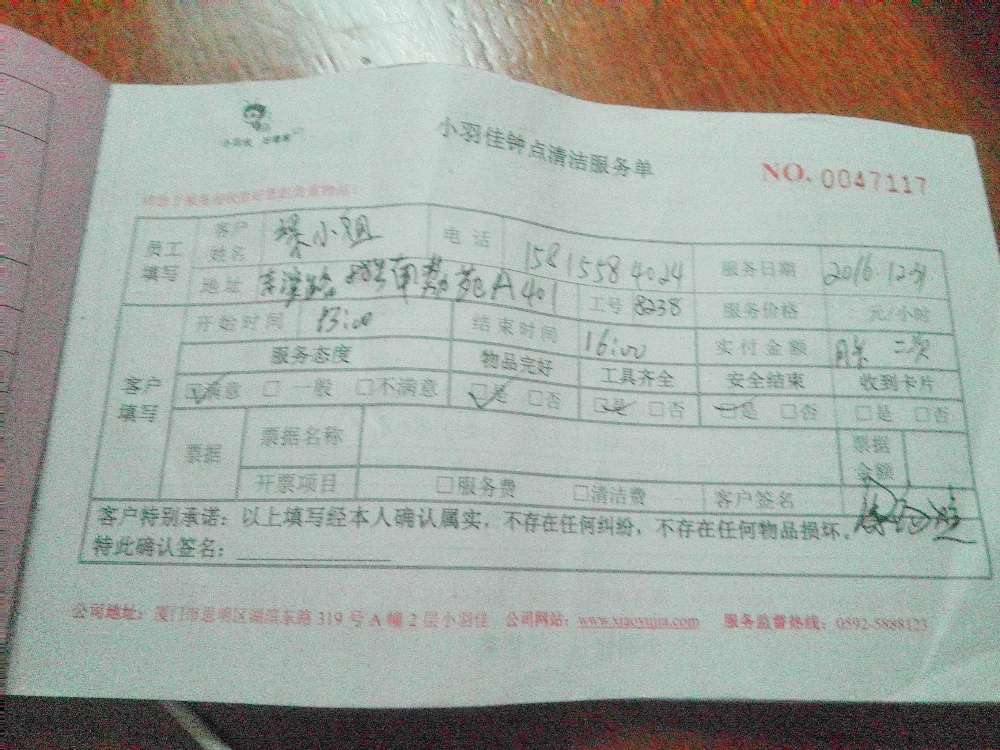 小羽佳钟点清洁服务单
NO. 0047117
员工填写 客户姓名 小姐 电话 15815584024 服务日期 2016.12.
地址 A401 工号 8238 服务价格 元/小时
开始时间 13:00 结束时间 16:00 实付金额 月卡 二次
客户填写 服务态度 物品完好 工具齐全 安全结束 收到卡片
☑满意 □一般 □不满意 ☑是 □否 ☑是 □否 ☑是 □否 □是 □否
票据 票据名称 票据金额
开票项目 □服务费 □清洁费 客户签名
客户特别承诺：以上填写经本人确认属实，不存在任何纠纷，不存在任何物品损坏。
特此确认签名：
公司地址：厦门市思明区湖滨东路 319 号 A 幢 2 层小羽佳 公司网站：www.xiaoyujia.com 服务监督热线：0592-5888123